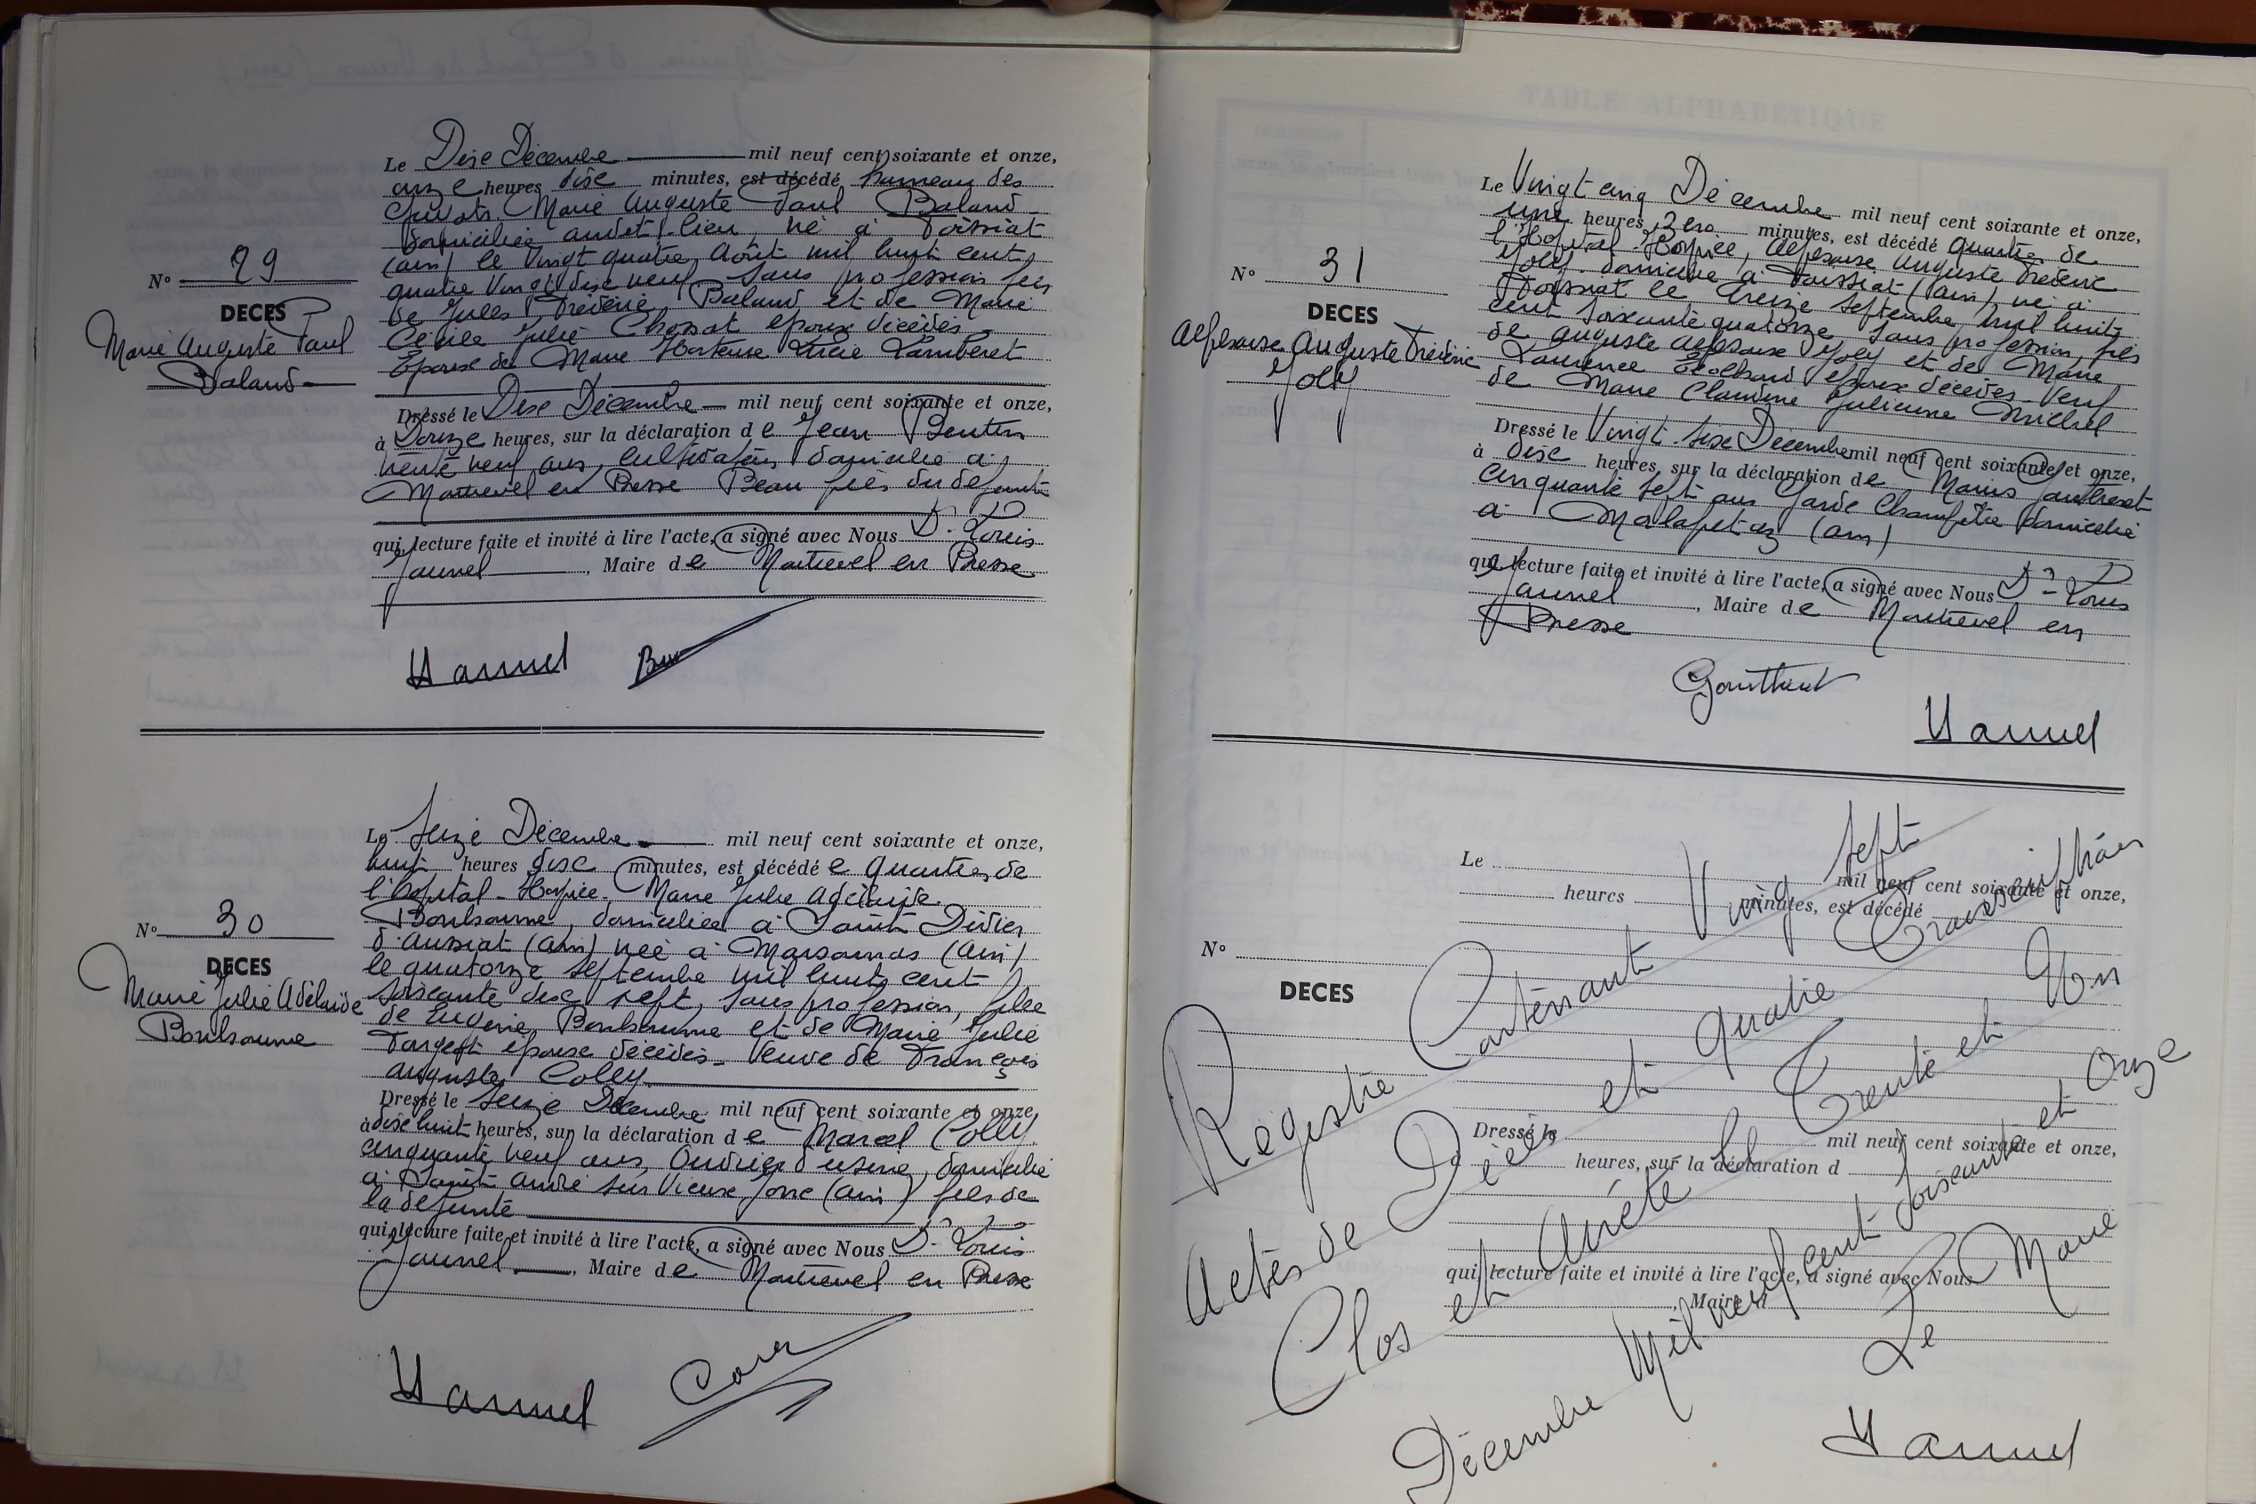 Le Dix Décembre mil neuf cent soixante et onze,
onze heures dix minutes, est décédé hameau des
Marie Auguste Paul Baland
domicilié audit lieu, né à Foissiat
(ain) le vingt quatre Août mil huit cent
quatre vingt dix neuf, sans profession fils
de Jules Frédéric Baland et de Marie
Cécile Julie Chossat époux décédés
Epoux de Marie Hortense Lucie Lamberet
N° 29
DECES
Marie Auguste Paul
Baland
Dressé le Dix Décembre mil neuf cent soixante et onze,
à Douze heures, sur la déclaration de Jean
neuf ans, cultivateur domicilié à
Montrevel en Bresse Beau fils du defunt
qui, lecture faite et invité à lire l'acte, a signé avec Nous Dr Louis
Jaunel, Maire de Montrevel en Bresse
Le Seize Décembre mil neuf cent soixante et onze,
huit heures dix minutes, est décédée quartier de
l'hopital-Hospice, Marie Julie Adélaïde
Bonhomme, domiciliée à Saint Didier
d'aussiat (ain) née à Marsonnas (ain)
le quatorze septembre mil huit cent
soixante dix sept, sans profession, fille
de Bonhomme et de Marie Julie
époux décédés - Veuve de François
auguste Colly
N° 30
DECES
Marie Julie Adélaïde
Bonhomme
Dressé le Seize Décembre mil neuf cent soixante et onze
à dix huit heures, sur la déclaration de Marcel Colly
cinquante neuf ans, Ouvrier d'usine, domicilié
à Saint andré sur Vieux Jonc (ain) fils de
la defunte
qui, lecture faite et invité à lire l'acte, a signé avec Nous Dr Louis
Jaunel, Maire de Montrevel en Bresse
Le Vingt cinq Décembre mil neuf cent soixante et onze,
une heures zero minutes, est décédé quartier de
l'Hopital-Hospice, Alphonse Auguste Frédéric
Joly domicilié à Foissiat (ain), né à
Foissiat le treize septembre mil huit
cent soixante quatorze sans profession, fils
de auguste alphonse Joly et de Marie
Laurence époux décédés - Veuf
de Marie Claudine Julienne Michel
N° 31
DECES
Alphonse Auguste Frédéric
Joly
Dressé le Vingt-six Décembre mil neuf cent soixante et onze,
à dix heures, sur la déclaration de Marius
cinquante sept ans Garde Champêtre domicilié
à Malafretaz (ain)
qui, lecture faite et invité à lire l'acte, a signé avec Nous Dr Louis
Jaunel, Maire de Montrevel en
Bresse
Le mil neuf cent soixante et onze,
heures minutes, est décédé
N°
DECES
Dressé le mil neuf cent soixante et onze,
heures, sur la déclaration d
qui, lecture faite et invité à lire l'acte, a signé avec Nous
, Maire d
Registre Contenant Vingt sept
Actes de Décès et quatre Transcriptions
Clos et Arrêté le Trente et Un
Décembre Mil neuf cent soixante et Onze
Le Maire